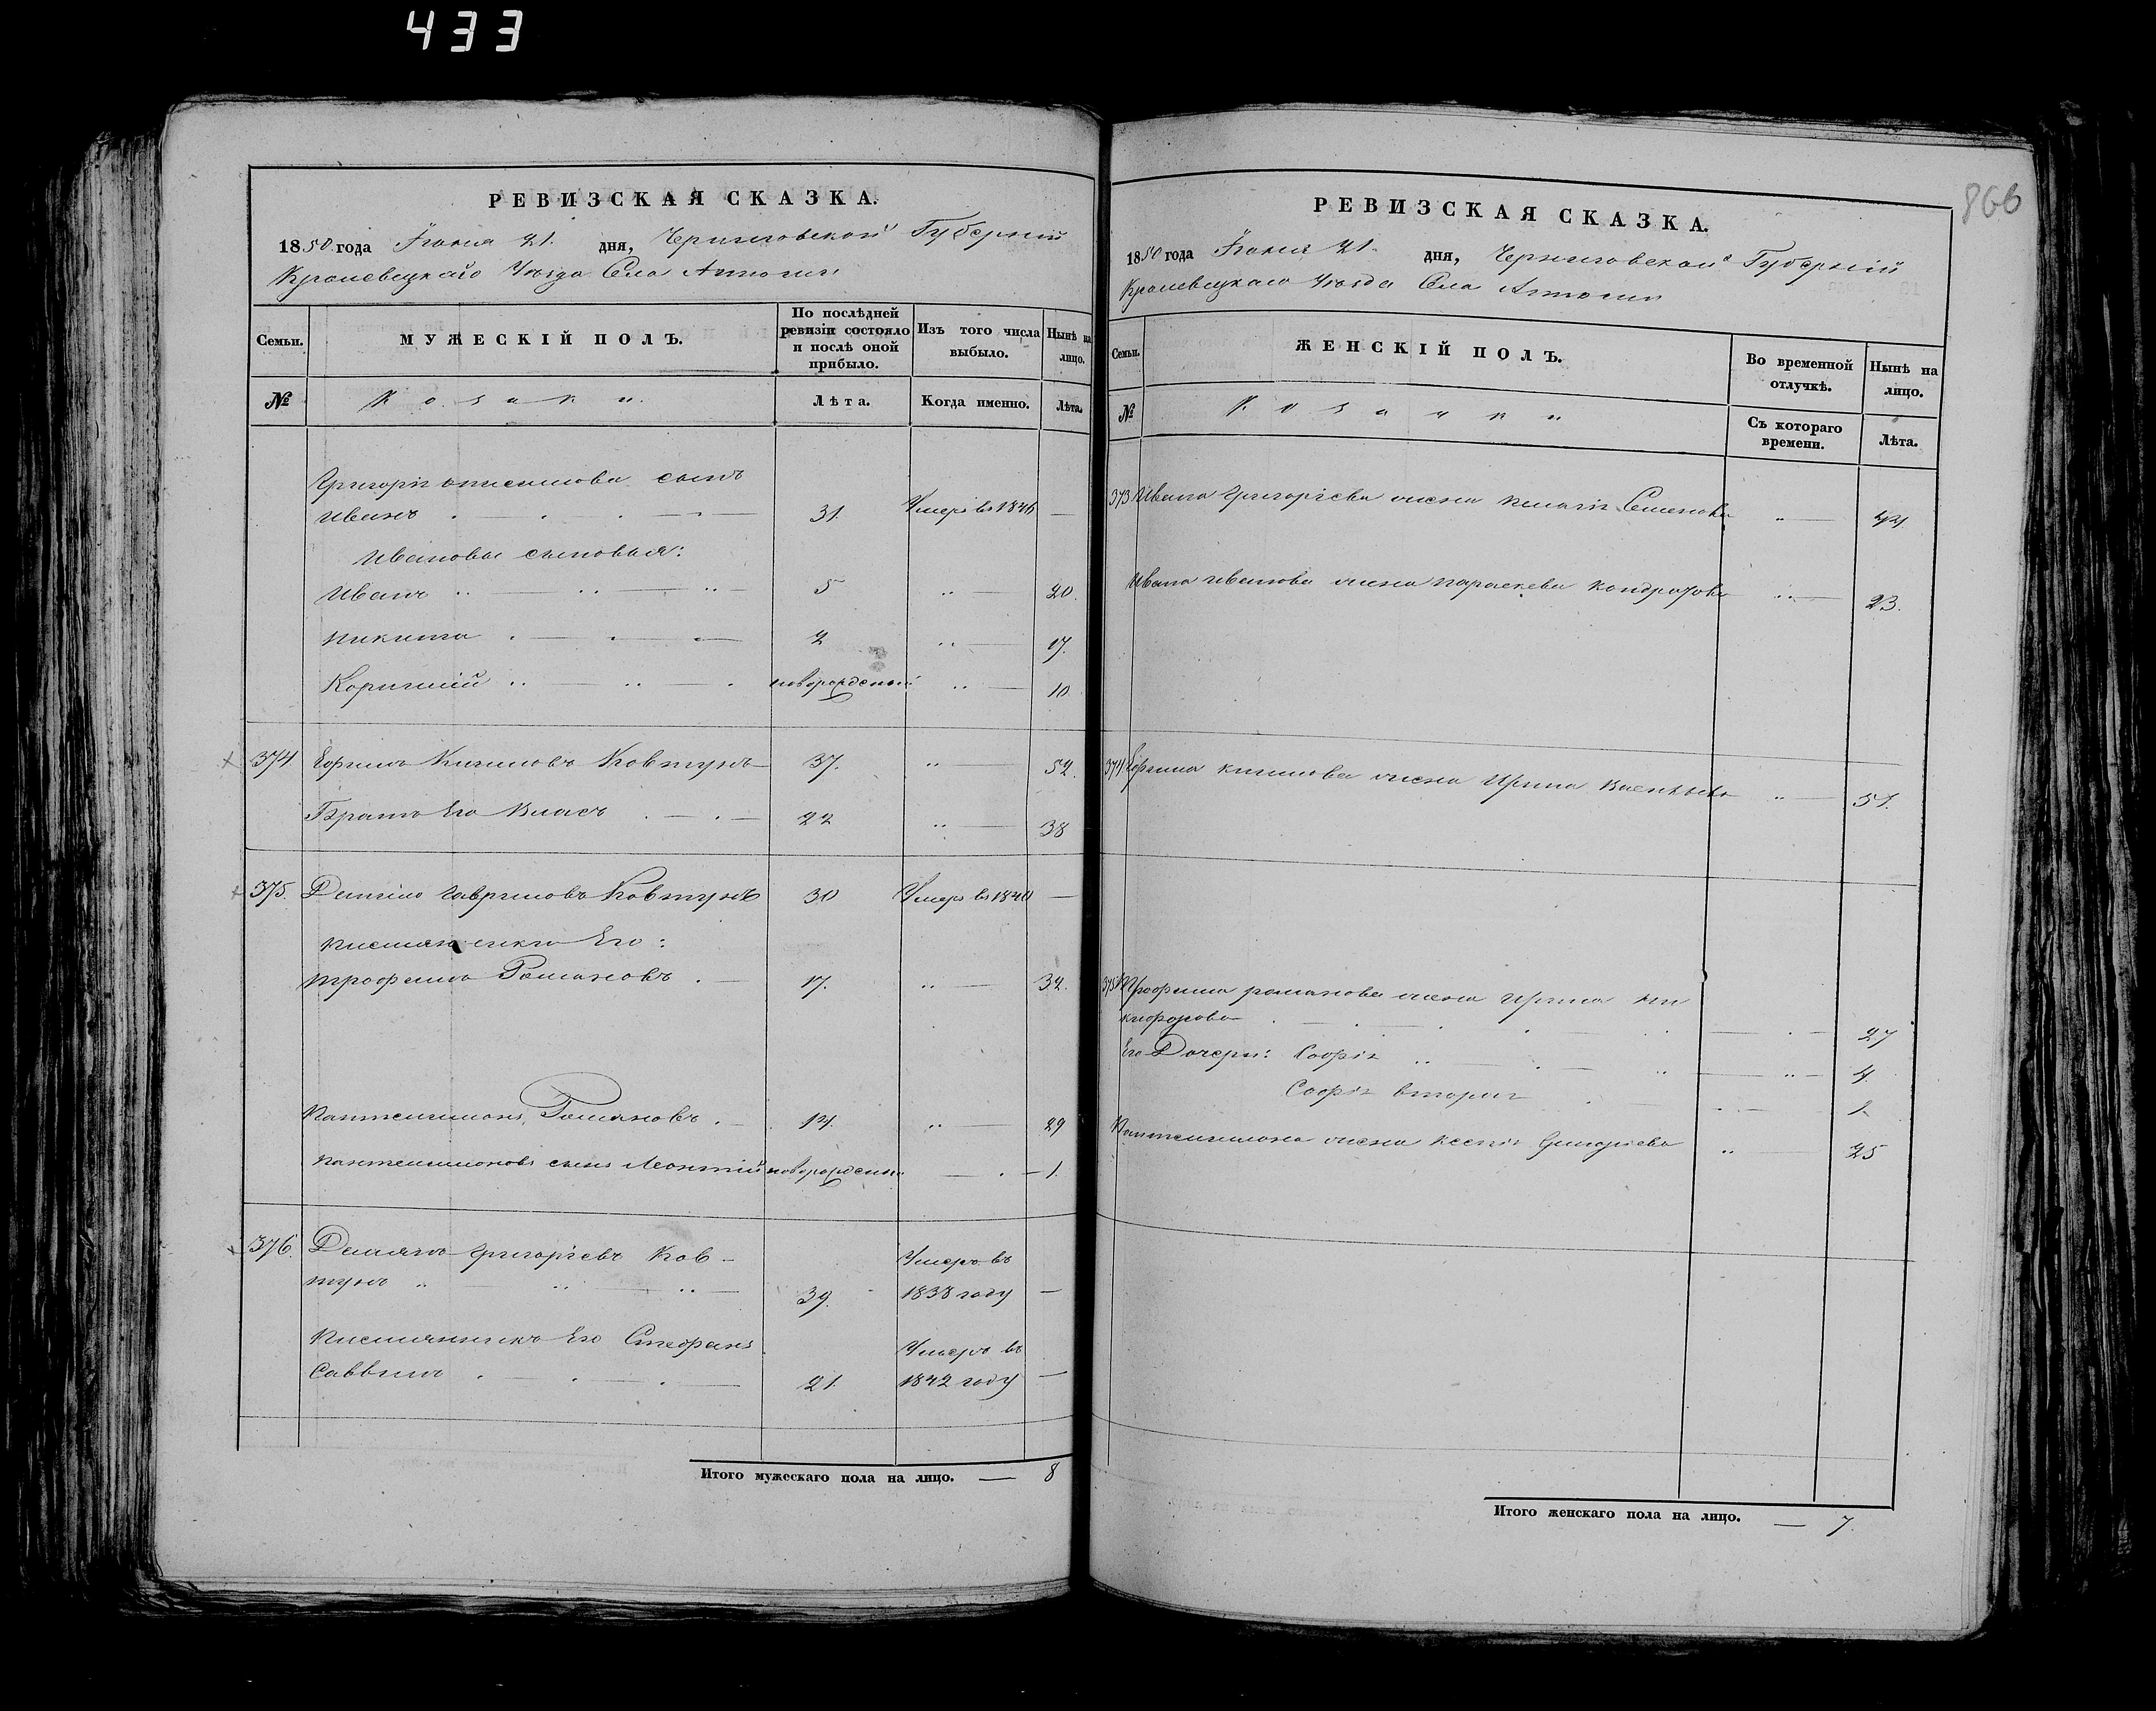 433
РЕВИЗСКАЯ СКАЗКА.
1850 года Іюня 21. дня, Черниговской Губерніи
Кролевецкаго Уѣзда Села
Семьи.
МУЖЕСКІЙ ПОЛЪ.
По послѣдней ревизіи состояло и послѣ оной прибыло.
Изъ того числа выбыло.
Нынѣ на лицо.
№
Козаки.
Лѣта.
Когда именно.
Лѣта.
Григорія Онисимова сынъ
Иванъ 31. Умеръ въ 1846 —
Ивановы сыновья:
Иванъ 5 20.
Никита 2 17.
Корнилій новорожденный 10
374 Ефимъ Климовъ Ковтунъ 37. 52.
Братъ Его Власъ 22 38
375. Данило Гавриловъ Ковтунъ 30 Умеръ въ 1840 —
племянники Его:
Трофимъ Романовъ 17. 32.
Пантелимонъ Романовъ 14. 29
Пантелимоновъ сынъ Леонтій новорожденный 1.
376. Демянъ Григорьевъ Ков-
тунъ 39. Умеръ въ 1838 году —
Племянникъ Его Стефанъ
Саввинъ 21. Умеръ въ 1842 году —
Итого мужескаго пола на лицо. — 8
866
РЕВИЗСКАЯ СКАЗКА.
1850 года Іюня 21. дня, Черниговской Губерніи
Кролевецкаго Уѣзда Села
Семьи.
ЖЕНСКІЙ ПОЛЪ.
Во временной отлучкѣ.
Нынѣ на лицо.
№
Козачки
Съ котораго времени.
Лѣта.
373 Ивана Григорьева жена Пелагія Семенова 44
Ивана Иванова жена Параскева Кондратова 23.
374 Ефима Климова жена Ирина Васильева 51.
375 Трофима Романова жена Ирина Ни
кифорова 27
Его Дочери: Софія 4.
Софія вторая 1.
Пантелимона жена Ксенія 25
Итого женскаго пола на лицо. — 7.